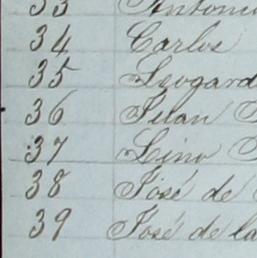 33 Antonio
34 Carlos
35 Leogard
36 Juan
37 Lino
38 José de
39 José de la